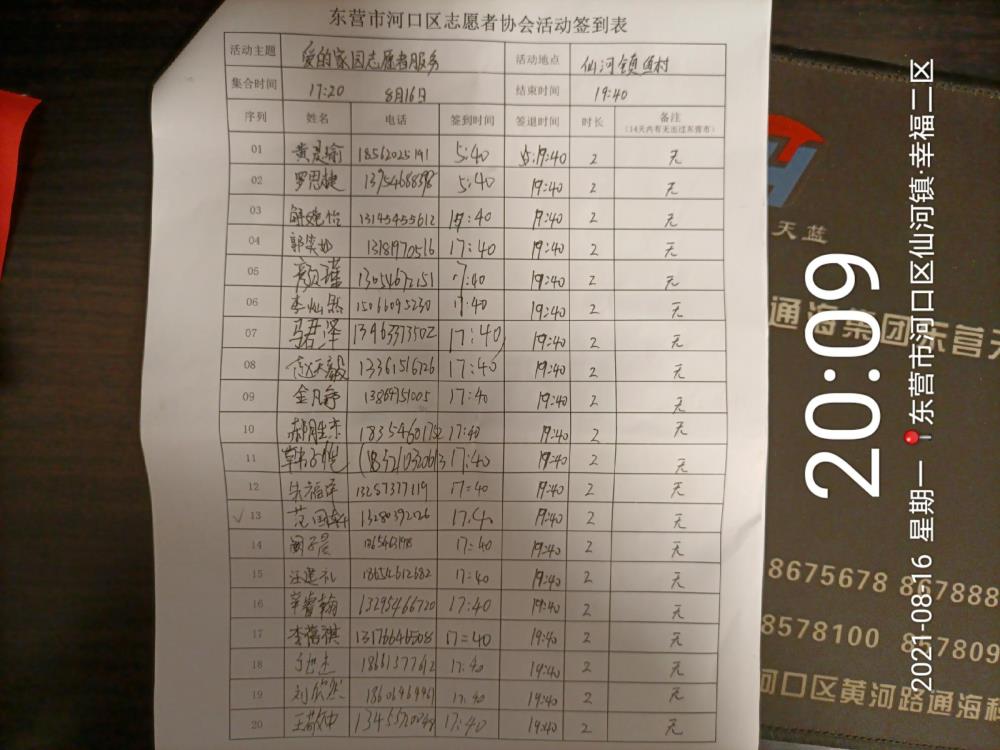 东营市河口区志愿者协会活动签到表
活动主题 爱的家园志愿者服务 活动地点 仙河镇渔村
集合时间 17:20 8月16日 结束时间 19:40
序列 姓名 电话 签到时间 签退时间 时长 备注
(14天内有无出过东营市)
01 18562025191 5:40 19:40 2 无
02 罗思捷 5:40 19:40 2 无
03 13145455612 17:40 19:40 2 无
04 郭笑如 13181970516 17:40 19:40 2 无
05 13054672151 17:40 19:40 2 无
06 李灿然 15066095230 17:40 19:40 2 无
07 马君泽 13963373502 17:40 19:40 2 无
08 赵天毅 13361516726 17:40 19:40 2 无
09 金凡舒 17:40 19:40 2 无
10 郝胜杰 17:40 19:40 2 无
11 17:40 19:40 2 无
12 朱福泽 17:40 19:40 2 无
13 范国轩 13280392126 17:40 19:40 2 无
14 17:40 19:40 2 无
15 汪建礼 18654612682 17:40 19:40 2 无
16 辛睿翰 13295466720 17:40 19:40 2 无
17 13176646508 17:40 19:40 2 无
18 17:40 19:40 2 无
19 刘欣然 17:40 19:40 2 无
20 王敬仲 17:40 19:40 2 无
天蓝
通海集团东营天
8675678 867888
8578100 857809
河口区黄河路通海科
20:09
2021-08-16 星期一 东营市河口区仙河镇·幸福二区